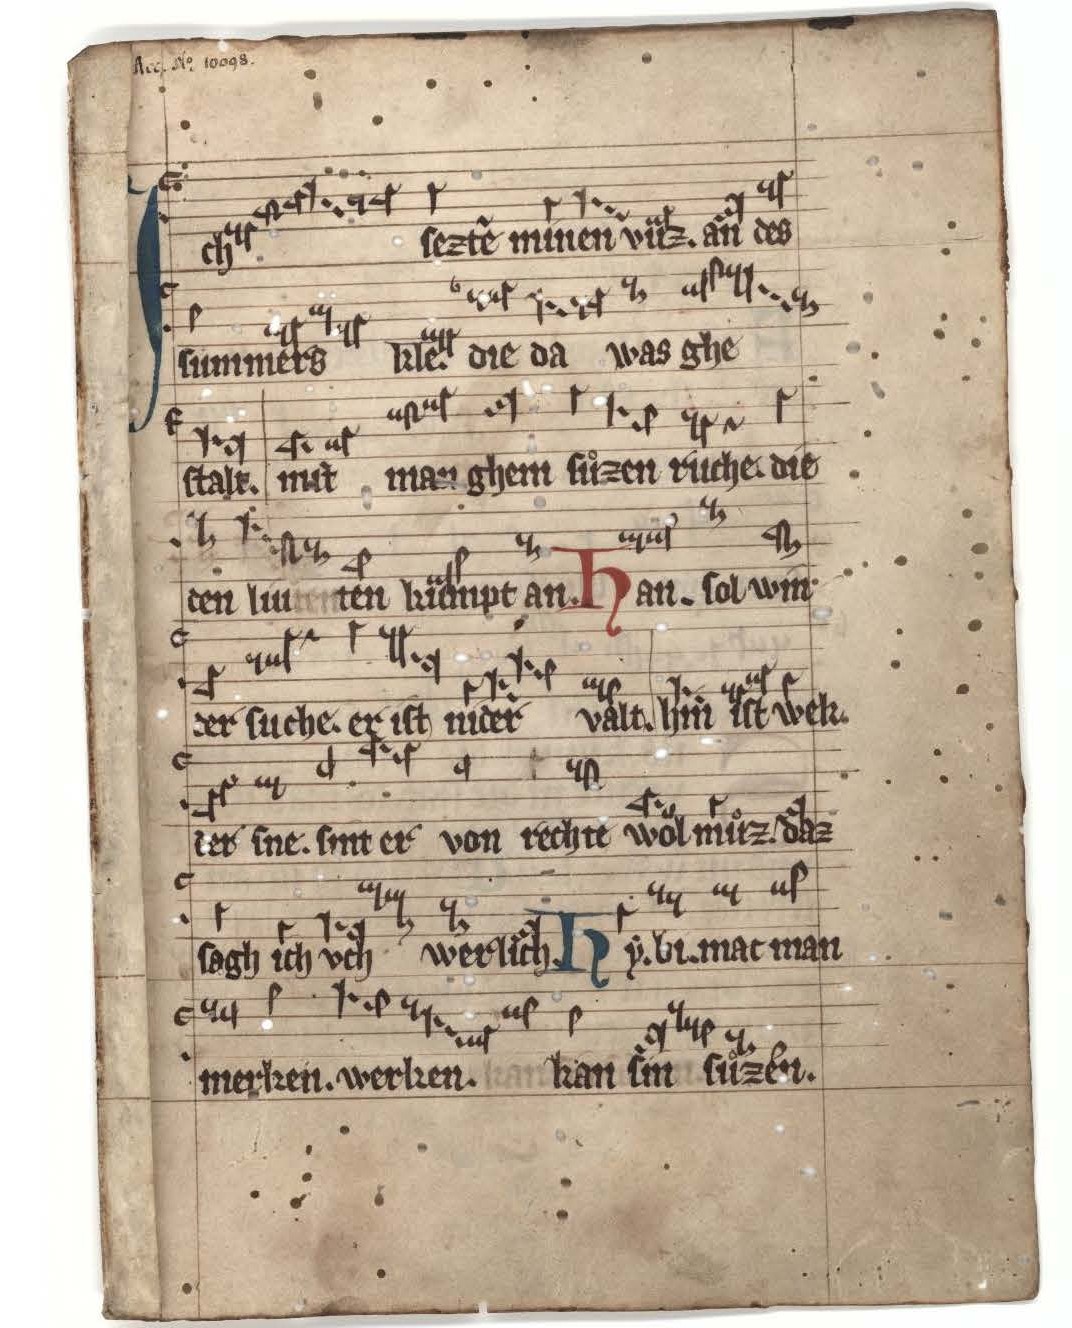 Acc. No. 10098.
Ich sezte minen vůz. an des
summers kle. die da was ghe
stalt. mit man ghem sůzen ruche. die
den liu ten kůmpt an. Han. sol win
ter suche. er ist nider valt. hin ist wek.
der sne. sint er von rechte wol můz. daz
sagh ich vch werlich. Hy. bi. mac man
merken. werken. kan sin sůzen.